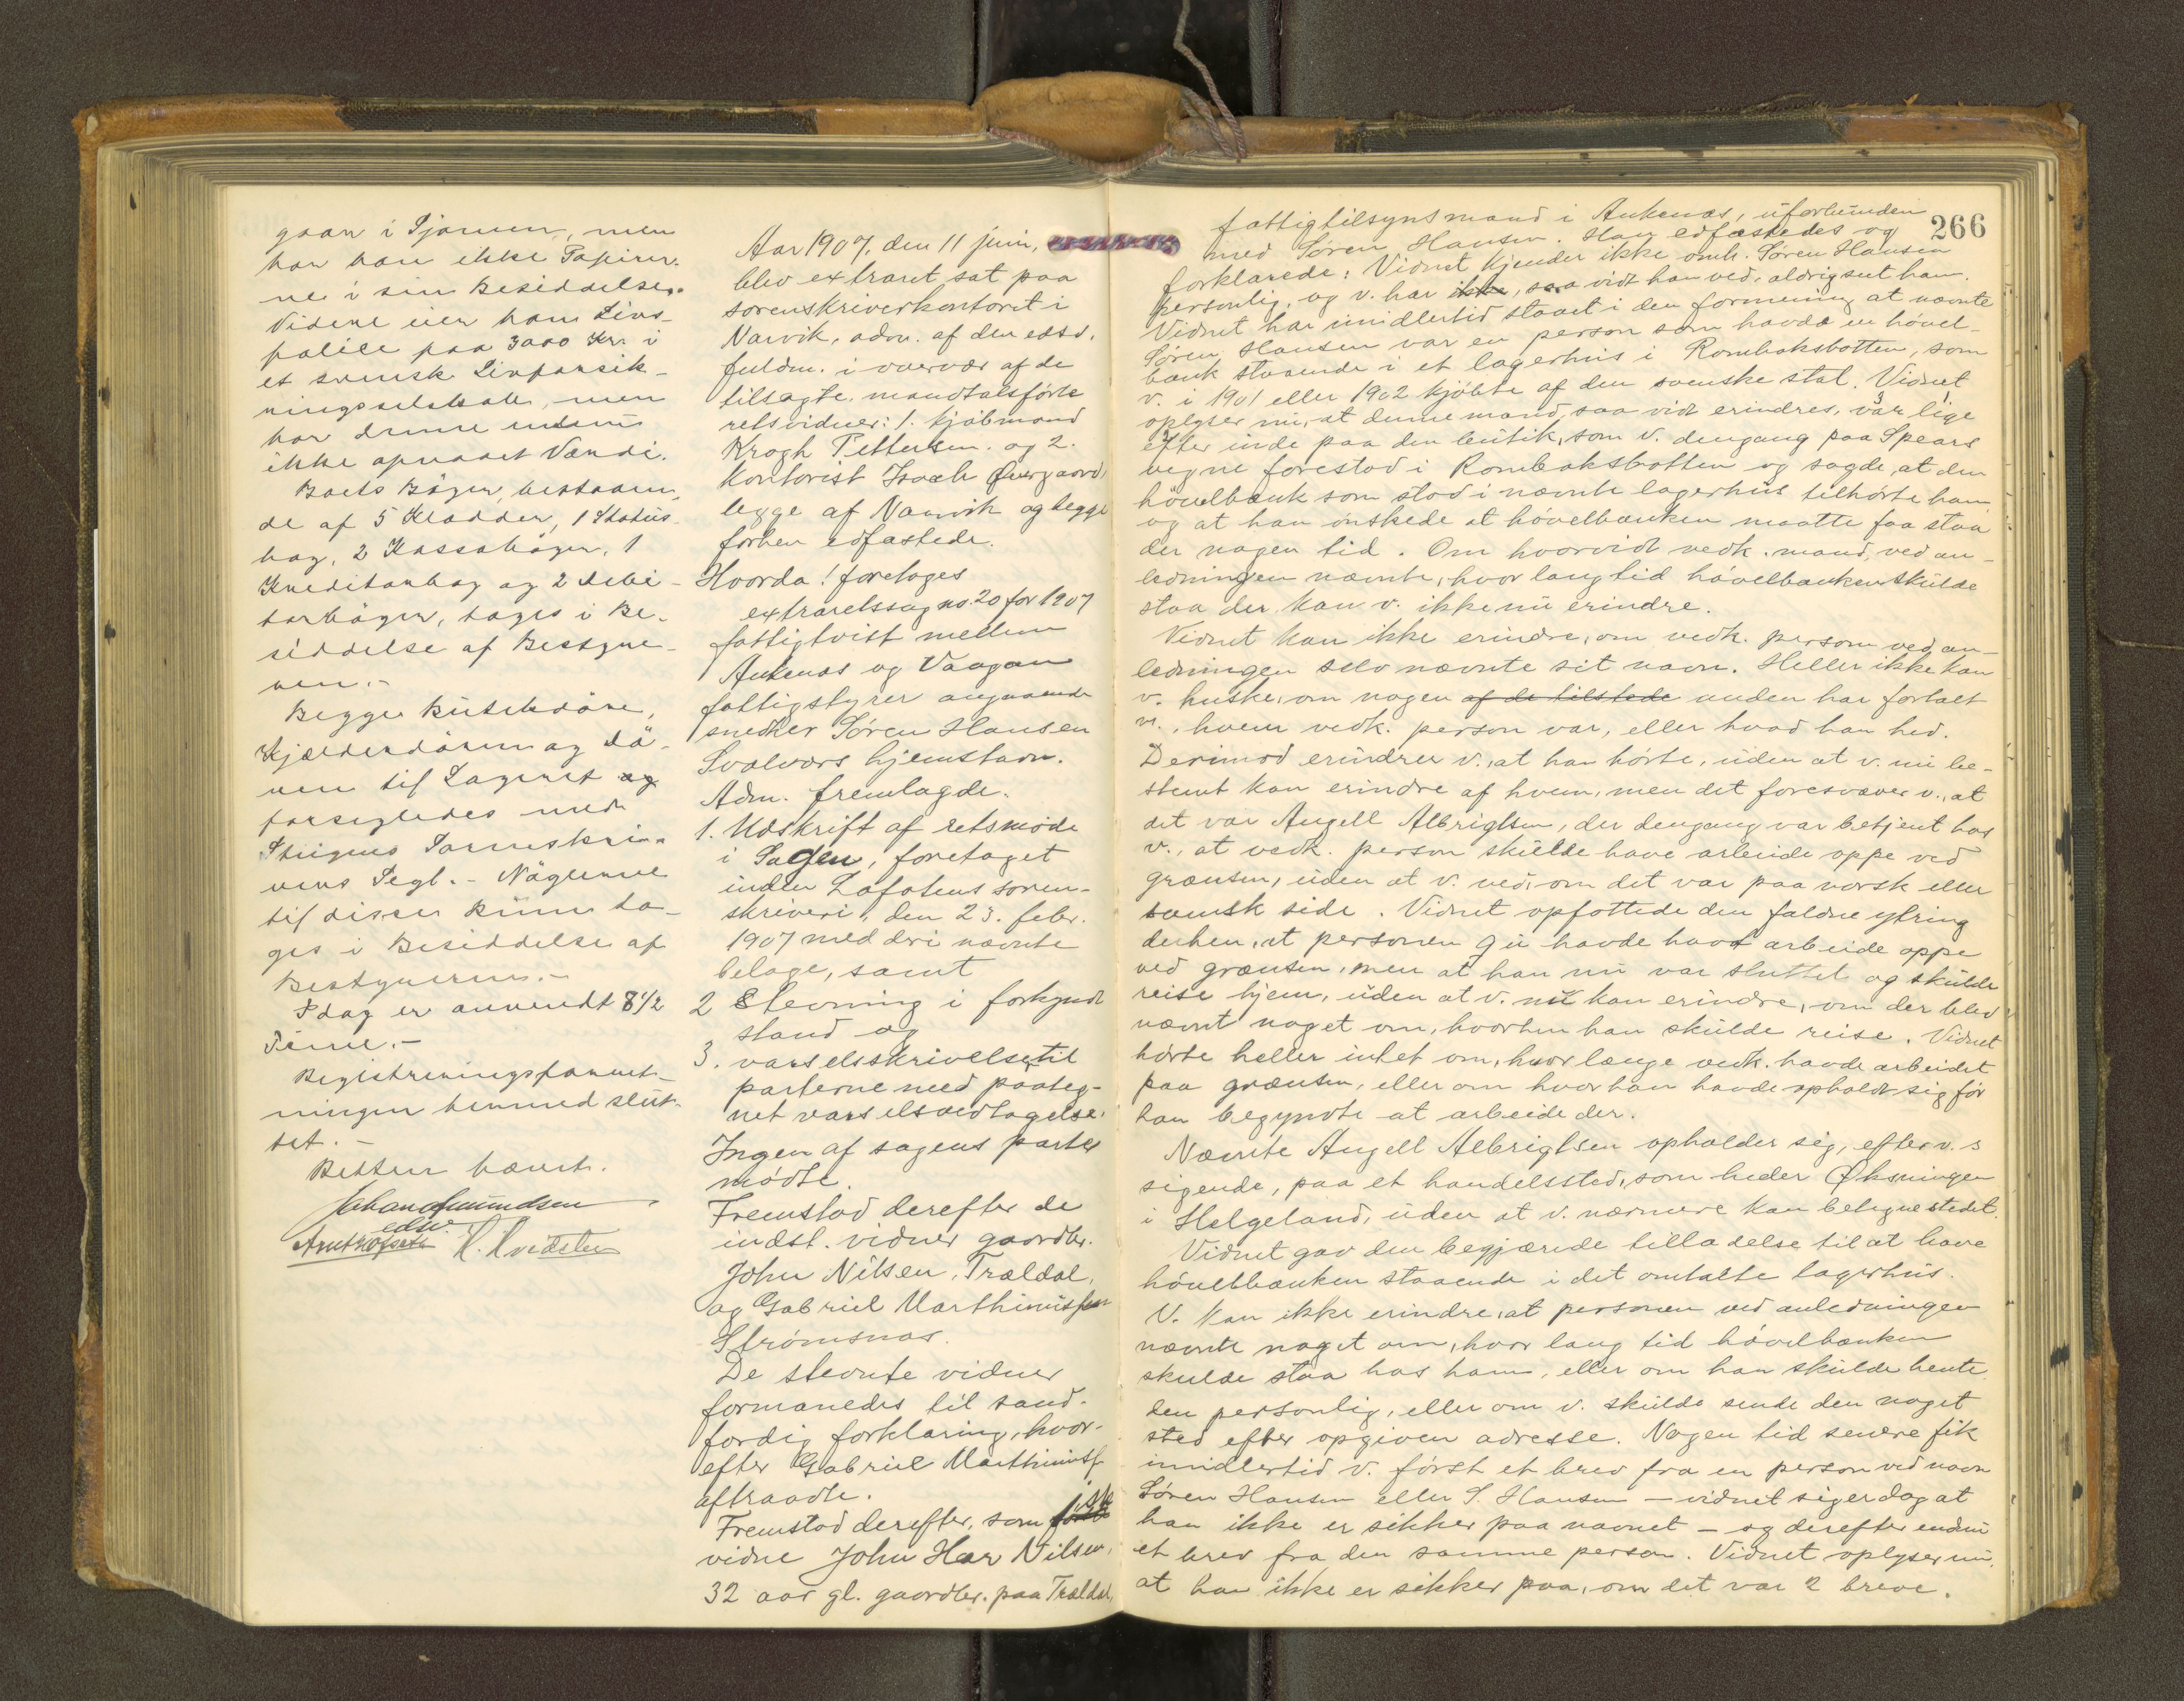 gaar i Tjomen, men
har han ikke Papirer-
ne i sin Besiddelse.
Videre eier han Livs-
polise paa 3000 Kr. i
et svensk Livforsik-
ringsselskab, men
har denne endnu
ikke opnaaet Værdi.
Boets Bøger, bestaaen-
de af 5 Kladder, 1 Status
bog, 2 Kassabøger, 1
Kreditorbog og 2 Debi-
torbøger, tages i Be-
siddelse af Bestyre-
ren.-
Begge Butikdøre,
Kjælderdøren og Dø-
ren til Lageret og
forsegledes med
Sorenskri-
vers Segl.- Nøglerne
til disse Rum ta-
ges i Besiddelse af
Bestyreren.-
Idag er anvendt 8 1/2
Time.-
Registreringsforret-
ningen hermed slut-
tet.-
Retten hævet.
Johan Amundsen
edsv.
H. Kvidsten
Aar 1907, den 11 juni,
blev extraret sat paa
sorenskriverkontoret i
Narvik, adm. af den edsv.
fuldm. i overvær af de
tilsagte mandtalsførte
retsvidner: 1. kjøbmand
Krogh Pettersen. og 2.
Kontorist Isach Øvergaard
begge af Narvik og begge
forhen edfæstede.
Hvorda! foretoges
extraretssag no. 20 for 1907
fattigtvist mellem
Ankenæs og Vaagan
fattigstyrer angaaende
snedker Søren Hansen
Svolværs hjemstavn.
Adm. fremlagde.
1. Udskrift af retsmøde
i Sagen, foretaget
inden Lofotens soren-
skriveri, den 23. febr.
1907 med deri nævnte
bilage, samt
2 Stevning i forkyndt
stand og
3. varselsskrivelse til
parterne med paateg-
net varselsvedtagelse.
Ingen af sagens parter
mødte.
Fremstod derefter de
indst. vidner gaardbr.
John Nilsen, Trældal,
og Gabriel Marthinussen
Strømsnæs.
De stevnte vidner
formanedes til sand-
færdig forklaring, hvor-
efter Gabriel Marthinuss.
aftraadte.
Fremstod derefter, som 1ste
vidne John Hær Nilsen,
32 aar gl. gaardbr. paa Trældal,
266
fattigtilsynsmand i Ankenæs, uforbunden
med Søren Hansen. Han edfæstedes og
forklarede: Vidnet kjender ikke omh. Søren Hansen
personlig, og v. har ikke, saa vidt han ved, aldrig seet ham.
Vidnet har imidlertid staaet i den formening at nævnte
Søren Hansen var en person som havde en høvel-
bænk staaende i et lagerhus i Rombaksbotten, som
v. i 1901 eller 1902 kjøbte af den svenske stat. Vidnet
oplyser nu, at denne mand, saa vidt erindres, var lige
efter inde paa den butik, som v. dengang paa Spears
vegne forestod i Rombaksbotten og sagde, at den
høvelbænk som stod i nævnte lagerhus tilhørte ham
og at han ønskede at høvelbænken maatte faa staa
der nogen tid. Om hvorvidt vedk. mand, ved an-
ledningen nævnte, hvor lang tid høvelbænken skulde
staa der, kan v. ikke nu erindre.
Vidnet kan ikke erindre, om vedk. person ved an-
ledningen selv nævnte sit navn. Heller ikke kan
v. huske, om nogen af de tilstede anden har fortalt
v., hvem vedk. person var, eller hvad han hed.
Derimod erindrer v., at han hørte, uden at v. nu be-
stemt kan erindre af hvem, men det foresvæver v., at
det var Angell Albrigtsen, der dengang var betjent hos
v., at vedk. person skulde have arbeide oppe ved
grænsen, uden at v. ved, om det var paa norsk eller
svensk side. Vidnet opfattede den faldne ytring
derhen, at personen ju havde havt arbeide oppe
ved grænsen, men at han nu var sluttet og skulde
reise hjem, uden at v. nu kan erindre, om der blev
nævnt noget om, hvorhen han skulde reise. Vidnet
hørte heller intet om, hvor længe vedk. havde arbeidet
paa grænsen, eller om hvor han havde opholdt sig før
han begyndte at arbeide der.
Nævnte Angell Albrigtsen opholder sig, efter v.s
sigende, paa et handelssted, som heder Øksningen
i Helgeland, uden at v. nærmere kan betegne stedet.
Vidnet gav den begjærede tilladelse til at have
høvelbænken staaende i det omtalte lagerhus.
V. kan ikke erindre, at personen ved anledningen
nævnte noget om, hvor lang tid høvelbænken
skulde staa hos ham, eller om han skulde hente
den personlig, eller om v. skulde sende den noget
sted efter opgiven adresse. Nogen tid senere fik
imidlertid v. først et brev fra en person ved navn
Søren Hansen eller S. Hansen – vidnet siger dog at
han ikke er sikker paa navnet – og derefter endnu
et brev fra den samme person. Vidnet oplyser nu,
at han ikke er sikker paa, om det var 2 breve.